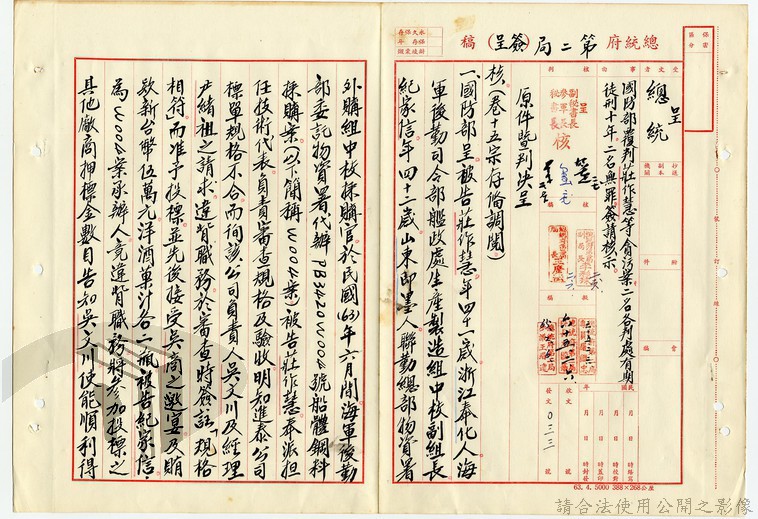 總統府第二局(簽呈)稿
呈
總統
國防部覆判莊作慧等貪污案二名各判處有期
徒刑十年二名無罪簽請核示
副秘書長
參軍長
秘書長
呈
核
原件暨判決呈
核(卷十五宗存備調閱)
一國防部呈被告莊作慧年四十一歲浙江奉化人海
軍後勤司令部艦政處生產製造組中校副組長
紀家信年四十二歲山東即墨人聯勤總部物資署
外購組中校採購官於民國(63)年六月間海軍後勤
部委託物資署代辦PB3420W004號船體鋼料
採購案(以下簡稱W004案)被告莊作慧奉派担
任技術代表負責審查規格及驗收明知進泰公司
標單規格不合而徇該公司負責人吳文川及經理
尹緒祖之請求違背職務於審查時簽註「規格
相符」而准予投標並先後接受吳商之邀宴及賄
款新台幣伍萬元洋酒菓汁各二瓶被告紀家信
為W004案承辦人竟違背職務將參加投標之
其他廠商押標金數目告知吳文川使能順利得
發文
033
號
63.4.5000 388×268公厘
請合法使用公開之影像